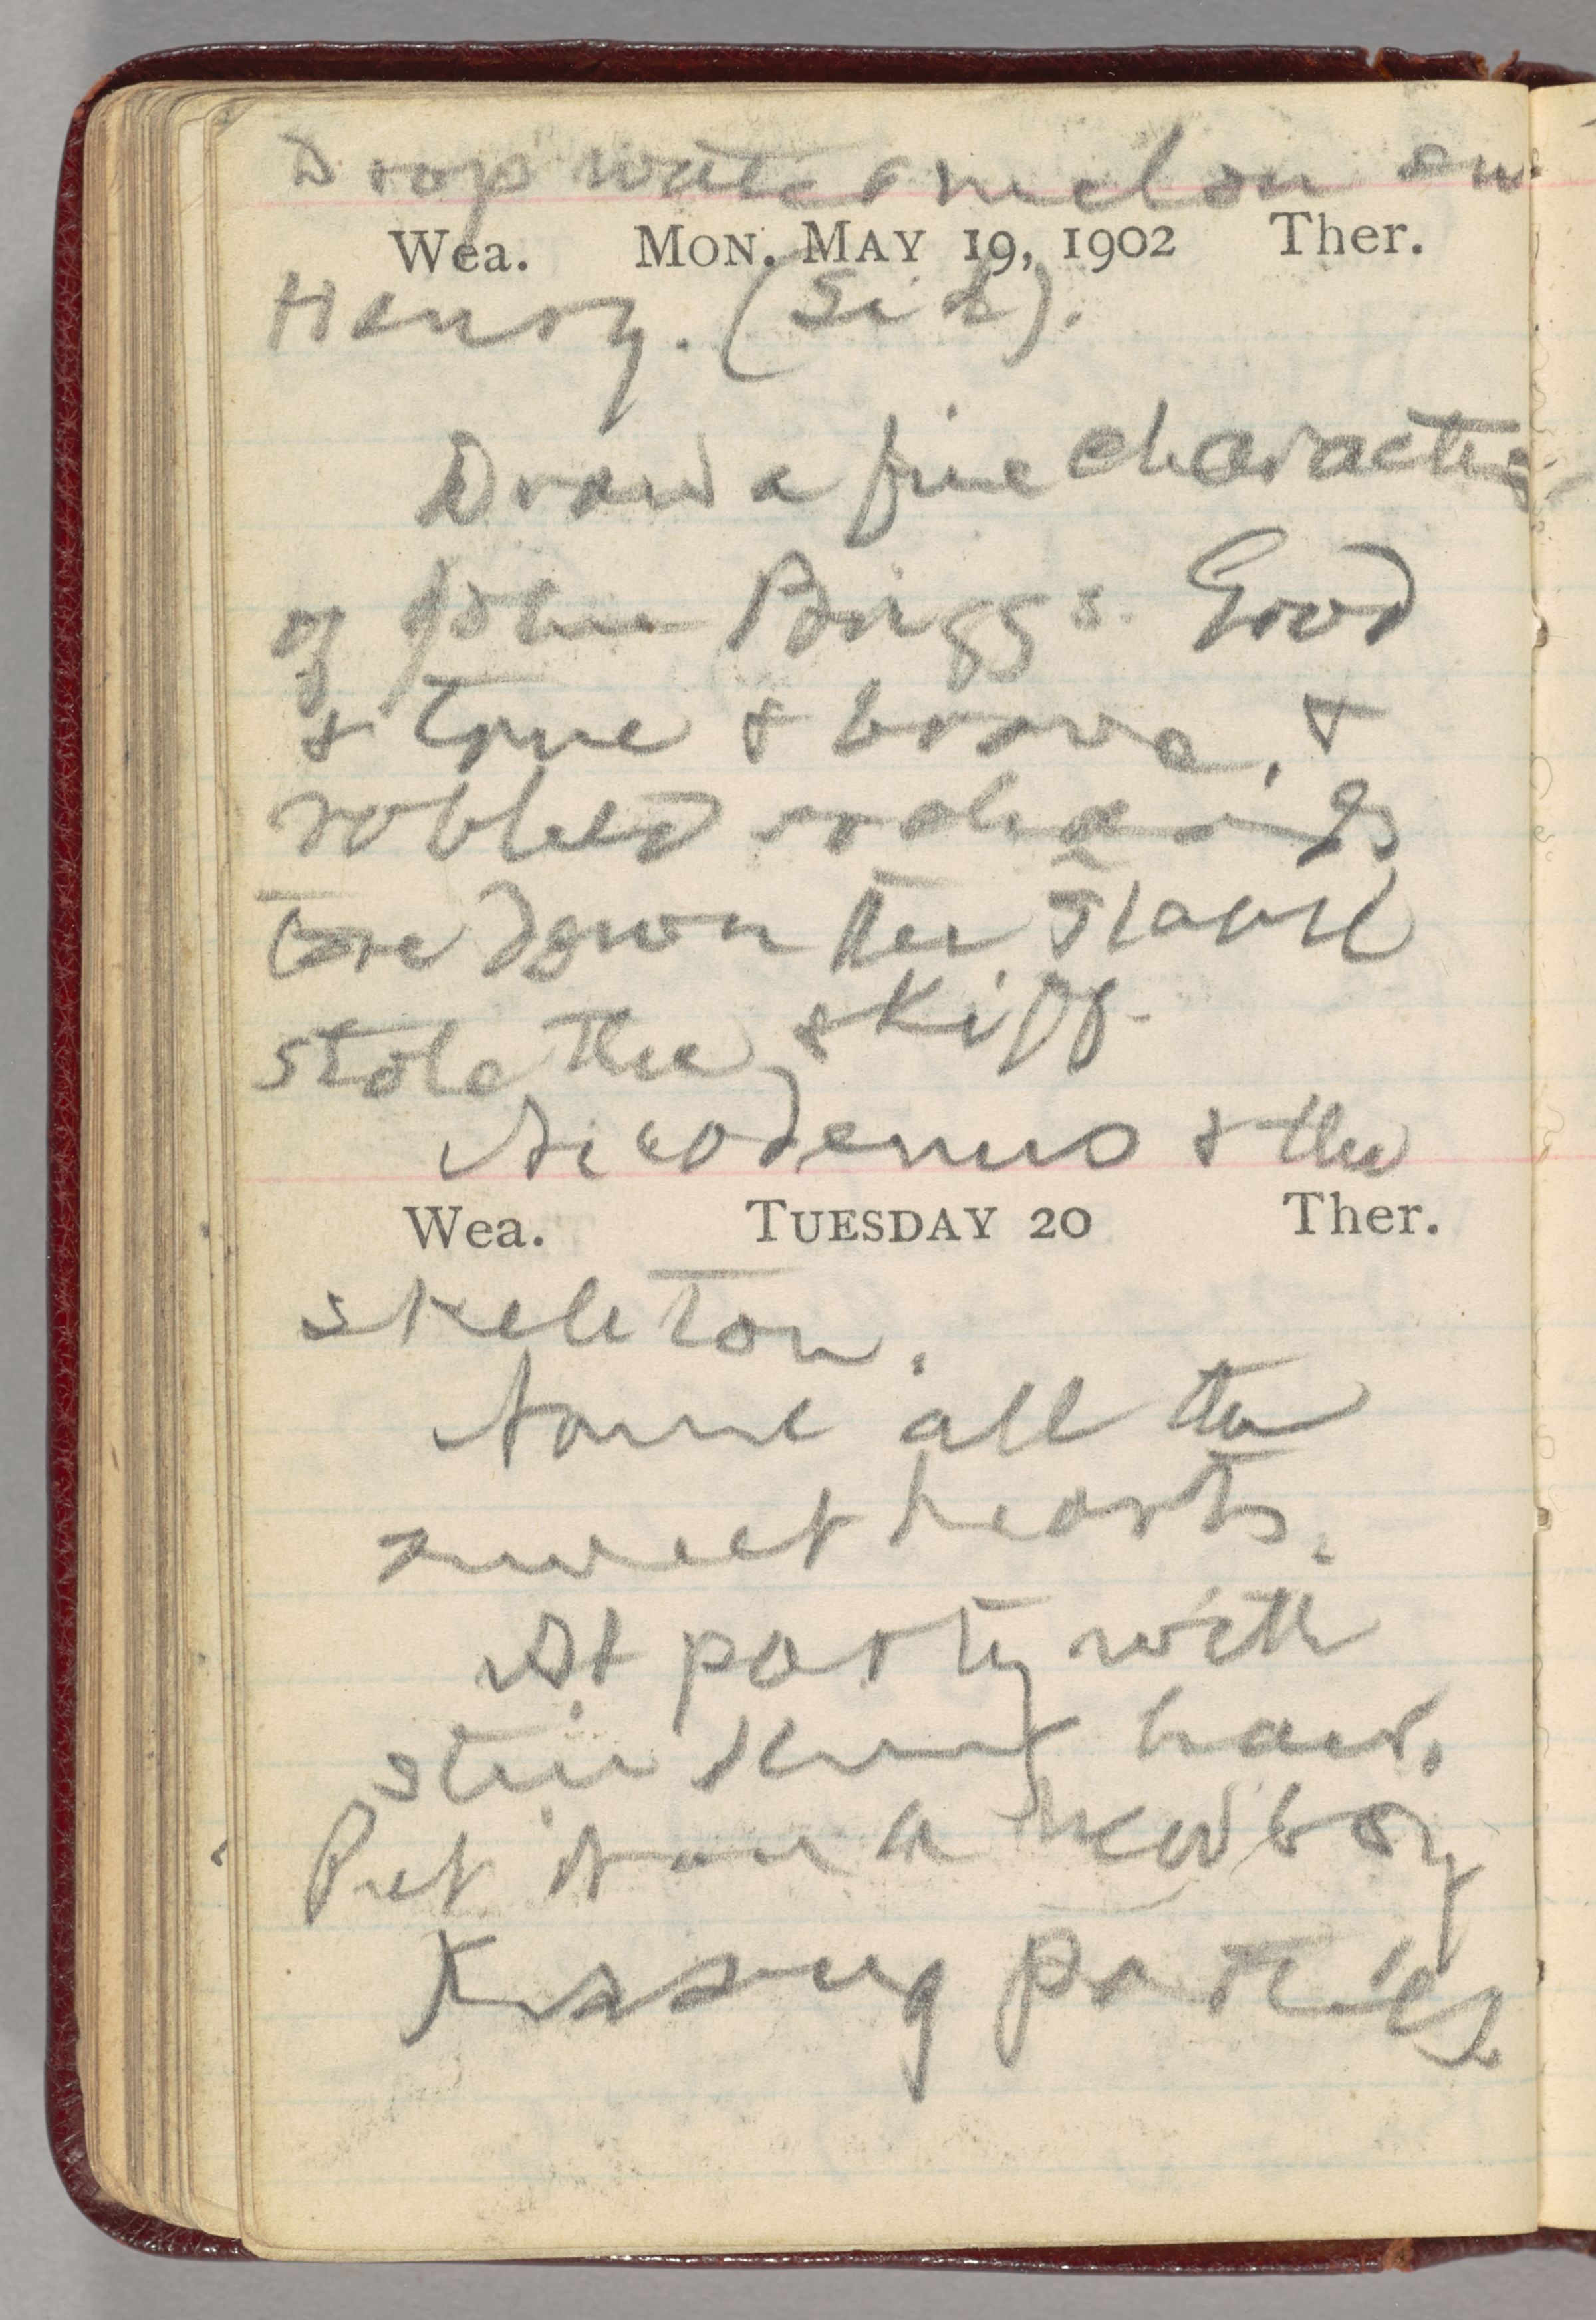 Drop watermelon on
Wea. MON. MAY 19, 1902 Ther.
Henry. (Sid).
Draw a fine character
of John Briggs. Good
& true & brave, &
robbed orchards
tore down the stable
stole the skiff.
Nicodemus & the
Wea. TUESDAY 20 Ther.
skeleton.
Name all the
sweet hearts.
At party with
hair.
Put New boy
Kissing parties